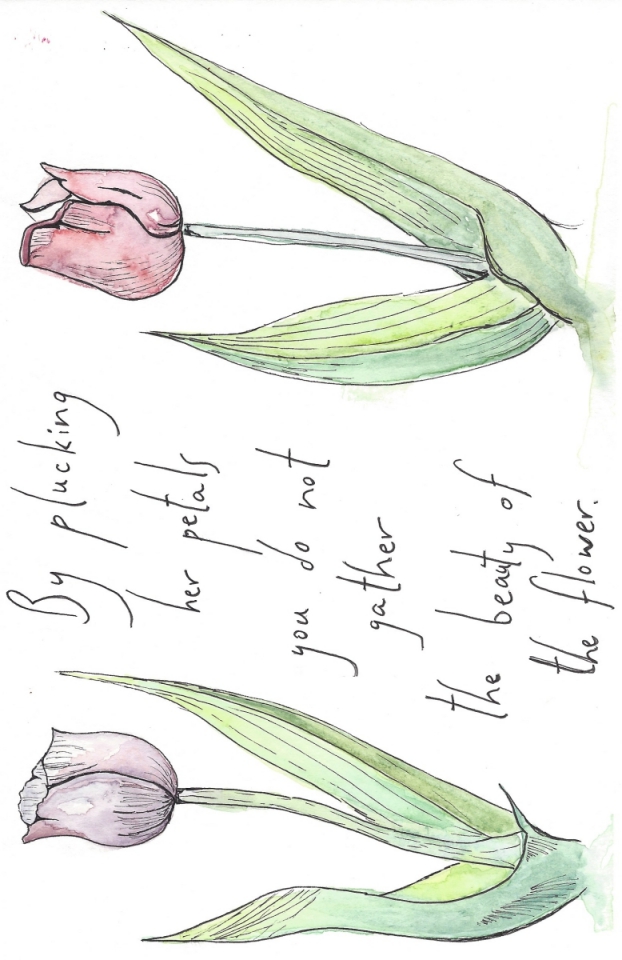 By plucking
her petals
you do not
gather
the beauty of
the flower.